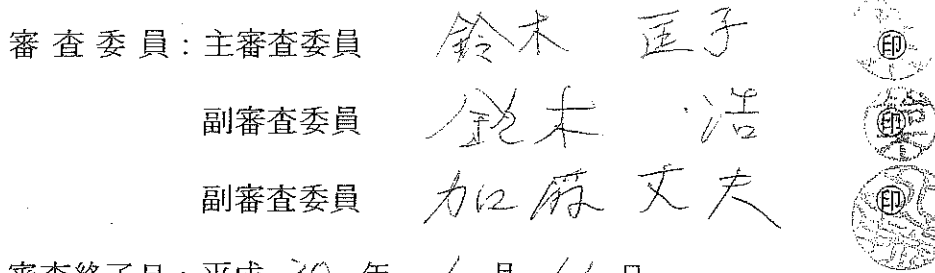 審査委員：主審査委員 鈴木 匡子 印
副審査委員 鈴木 浩 印
副審査委員 加藤 丈夫 印
審査終了日：平成 30 年 月 日